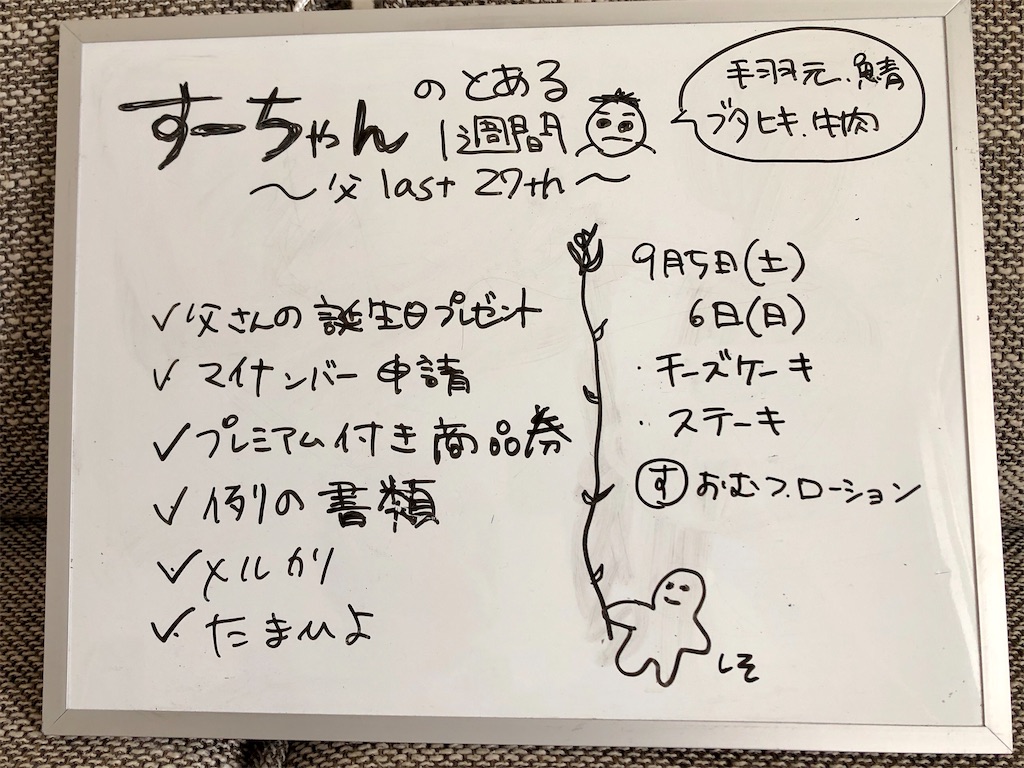 すーちゃん のとある
1週間
〜父 last 27th〜
手羽元、鯖
ブタヒキ、牛肉
✓父さんの誕生日プレゼント
✓マイナンバー申請
✓プレミアム付き商品券
✓例の書類
✓メルカリ
✓たまひよ
9月5日(土)
6日(日)
・チーズケーキ
・ステーキ
す おむつ、ローション
しそ